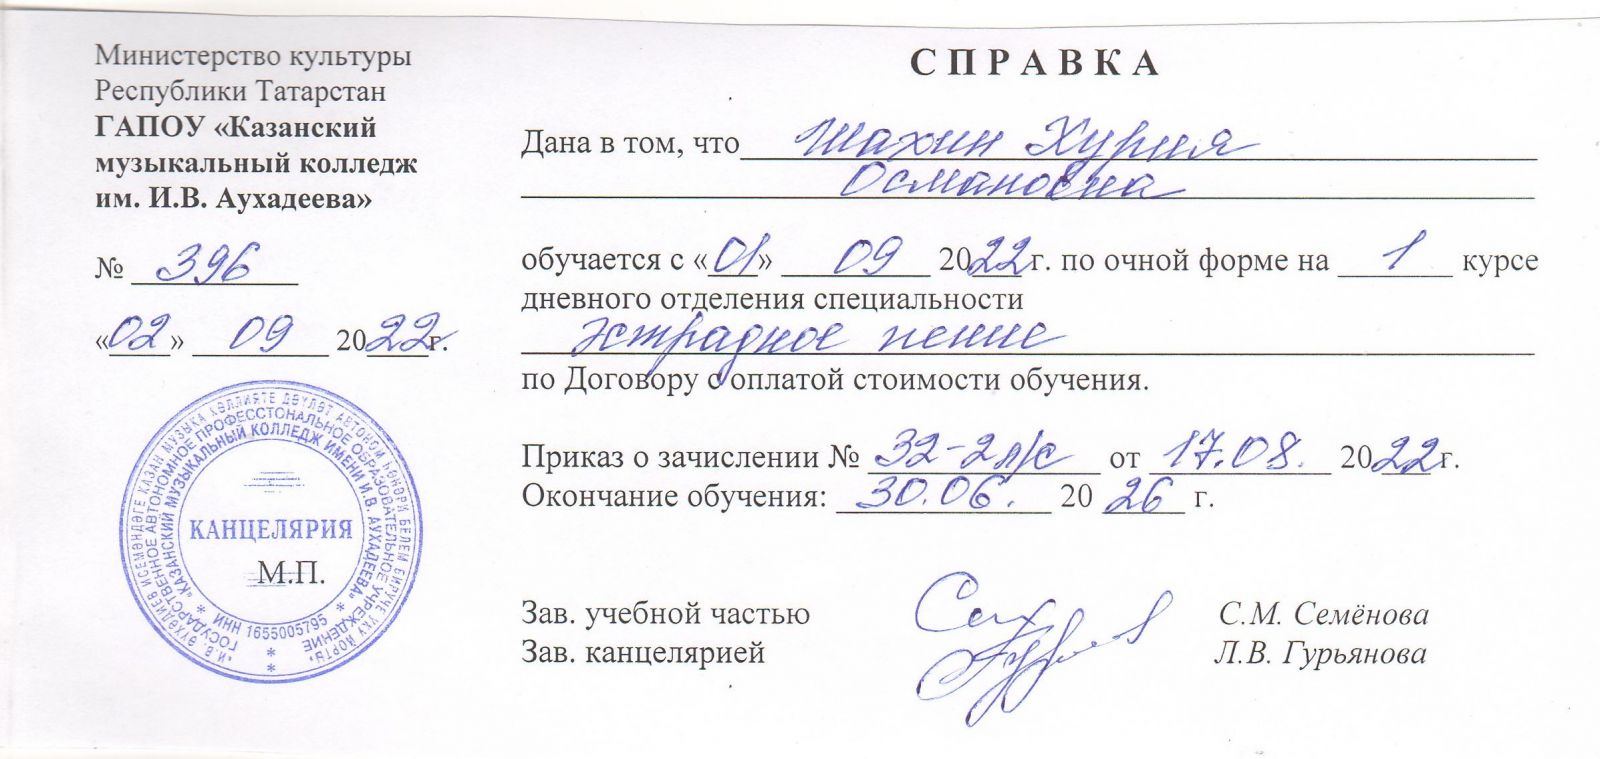 Министерство культуры
Республики Татарстан
ГАПОУ «Казанский
музыкальный колледж
им. И.В. Аухадеева»
№ 396
«02» 09 2022г.
КАНЦЕЛЯРИЯ
М.П.
ГОСУДАРСТВЕННОЕ АВТОНОМНОЕ ПРОФЕССТОНАЛЬНОЕ ОБРАЗОВАТЕЛЬНОЕ УЧРЕЖДЕНИЕ
«КАЗАНСКИЙ МУЗЫКАЛЬНЫЙ КОЛЛЕДЖ ИМЕНИ И.В. АУХАДЕЕВА»
* ИНН 1655005795 *
СПРАВКА
Дана в том, что Шахин Хурия
Османовна
обучается с «01» 09 2022 г. по очной форме на 1 курсе
дневного отделения специальности
эстрадное пение
по Договору с оплатой стоимости обучения.
Приказ о зачислении № 32-2л/с от 17.08. 2022г.
Окончание обучения: 30.06. 20 26 г.
Зав. учебной частью С.М. Семёнова
Зав. канцелярией Л.В. Гурьянова